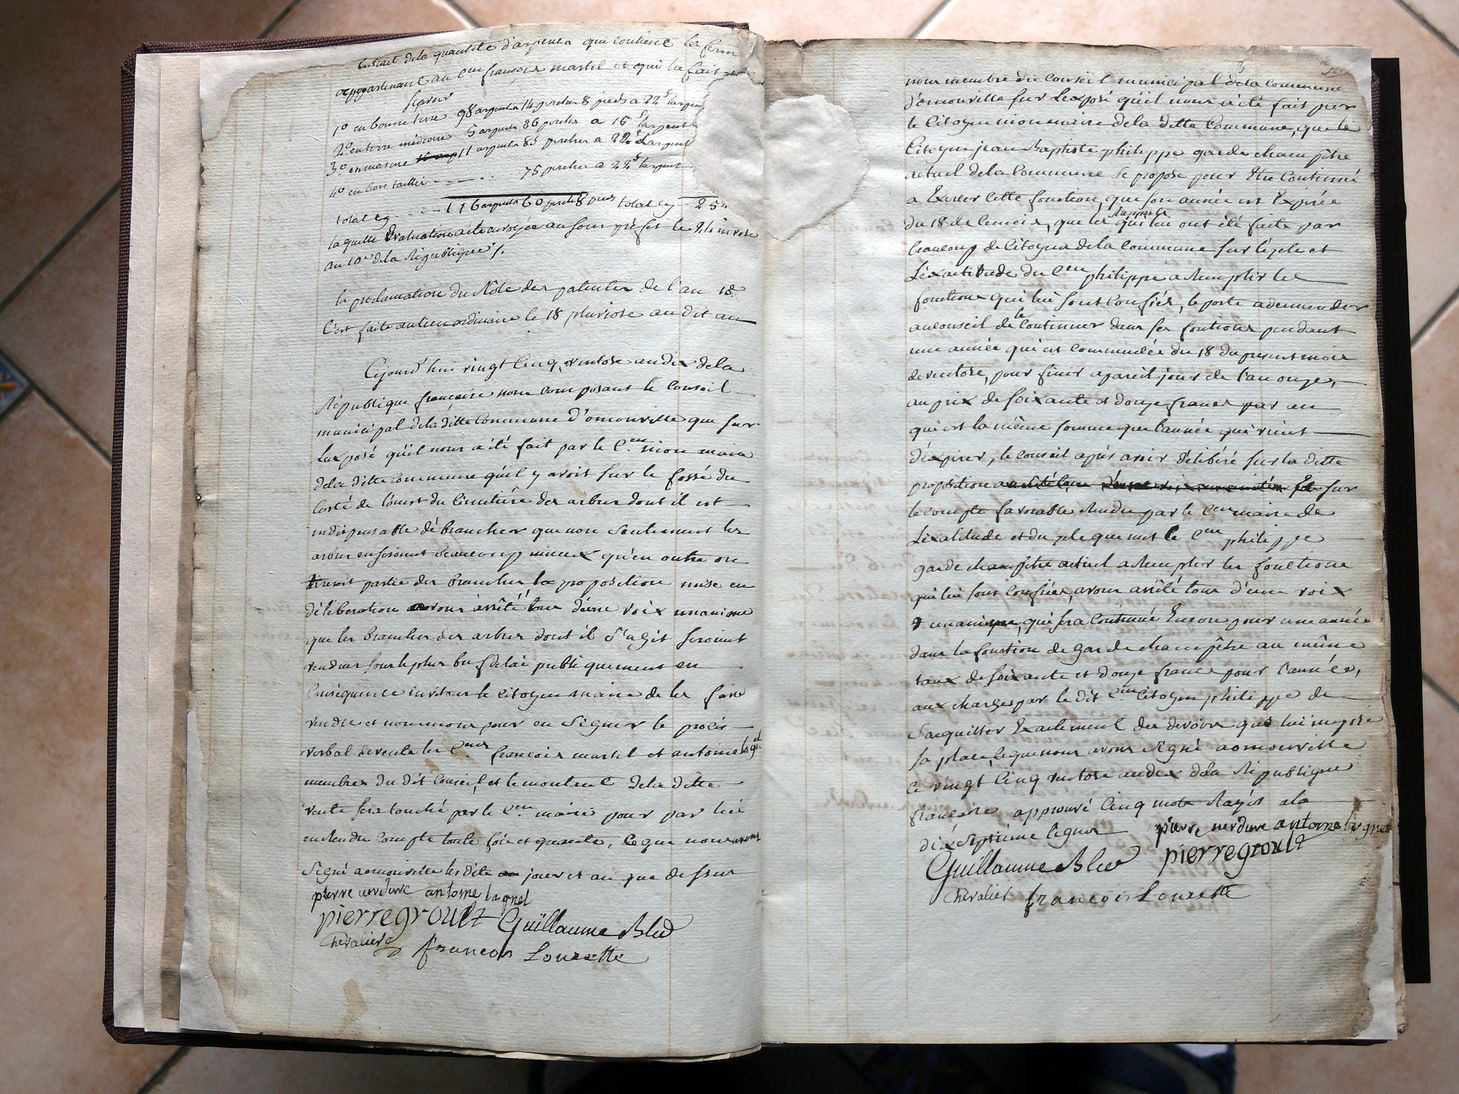 Extrait de la quantité d'arpents que contient la ferme
appartenant au Cen françois martel et qui la fait
1º en bonne terre 98 arpents 14 perches 8 pieds a 22# larpent
2º en terre médiocre 5 arpents 86 perches a 15# larpent
3º en masure 11 arpents 85 perches a 22# Larpent
4º en bois taillis 75 perches a 22# larpent
total eg 116 arpents 60 perches 8 pieds total eg
laquelle Evaluation a été envoyée au sous préfet le
au 10e de la République
la proclamation du Rôle des patentes de l'an 18
C'est faite au lieu ordinaire le 18 pluviose au dit an
Cejourd'hui vingt Cinq ventose an dix de la
République françoise nous composant le Conseil
municipal de la ditte Commune d'omonville que sur
Lexposé qu'il nous a été fait par le Cen mon maire
de la ditte commune qu'il y avoit sur le fossé du
Costé de Louest du Cimetiere des arbres dont il est
indispensable débrancher que non Seulement les
arbres en seront beaucoup mieux qu'en outre on
partie des branches la proposition mise en
déliberation avons arrêté tous d'une voix unanime
que les branches des arbres dont il S'agit seroient
vendues sous le plus bref delai publiquement en
Conséquence invitons le Citoyen maire de les faire
vendre et nommons pour en Signer le procès
verbal de vente les Cens françois martel et antoine
membres du dit Conseil, et le montant de la ditte
vente sera touché par le Cen maire pour par lui
en Rendre Compte toute fois et quante, Ce que nous avons
Signé a omonville les dits jour et an que dessus
pierre verdure antoine lagnel
pierre groult Guillaume Bled
Chevalier françois Lourette
nous membre du Conseil municipal de la commune
d'omonville sur Lexposé qu'il nous a été fait par
le Citoyen mon maire de la ditte Commune, que le
Citoyen jean Baptiste philippe garde champêtre
actuel de la Commune Se propose pour être Continué
a Exercer cette fonction, que son année est Expirée
du 18 de ce mois, que les Rapports qui lui ont été faits par
beaucoup de Citoyens de la Commune sur le zele et
Lexactitude du Cen philippe a Remplir les
fonctions qui lui sont Confiés, le porte a demander
au conseil de le Continuer dans ses fontions pendant
une année qui est commencée du 18 du present mois
de ventose, pour finir a pareil jour de l'an onze,
au prix de soixante et douze francs par an
qui est la même somme que l'année qui vient
d'expirer, le conseil après avoir délibéré sur la dette
proposition sur
le compte favorable Rendu par le Cen maire de
Lexatitude et du zele que met le Cen philippe
garde champêtre actuel a Remplir les fonctions
qui lui sont confiées avons arrêté tous d'une voix
unanime, qui sera Continué Encore pour une année
dans la fonction de garde champêtre au même
taux de soixante et douze francs pour l'année,
aux charges par le dit Citoyen philippe de
Sacquitter Exactement des devoirs que lui impose
sa place, le que nous avons Signé a omonville
ce vingt Cinq ventose an dix de la République
françoise approuvé Cinq mots Rayés a la
dix Septieme ligne
pierre verdure antoine lagnel
Guillaume Bled pierre groult
Chevalier françois Lourette